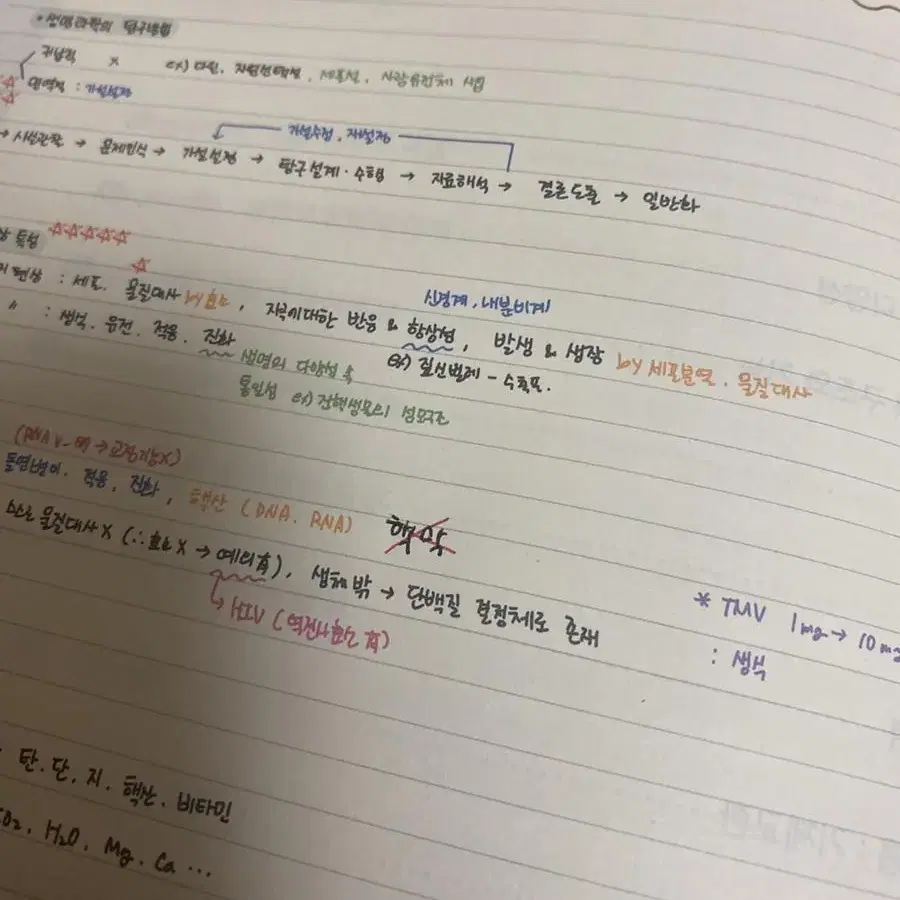 • 생명과학의 탐구방법
귀납적 X ex) 다윈, 자연선택설, 세포설, 사람유전체 사업
연역적 : 가설설정
가설수정, 재설정
→ 시설관찰 → 문제인식 → 가설설정 → 탐구설계·수행 → 자료해석 → 결론도출 → 일반화
특성 ☆☆☆☆☆
☆
신경계, 내분비계
현상 : 세포. 물질대사 by효소, 자극에대한 반응 & 항상성, 발생 & 생장 by 세포분열. 물질대사
〃 : 생식. 유전. 적응. 진화 ex)
생명의 다양성 속
통일성 ex)
(RNA
돌연변이. 적응. 진화, 핵산 (DNA. RNA) 핵막
스스로 물질대사 X (∴효소 X → 예외有), 생체 밖 → 단백질 결정체로 존재
↳ HIV (역전사효소 有)
* TMV 1mg → 10mg
: 생식
탄. 단. 지. 핵산. 비타민
CO2. H2O. Mg. Ca ...